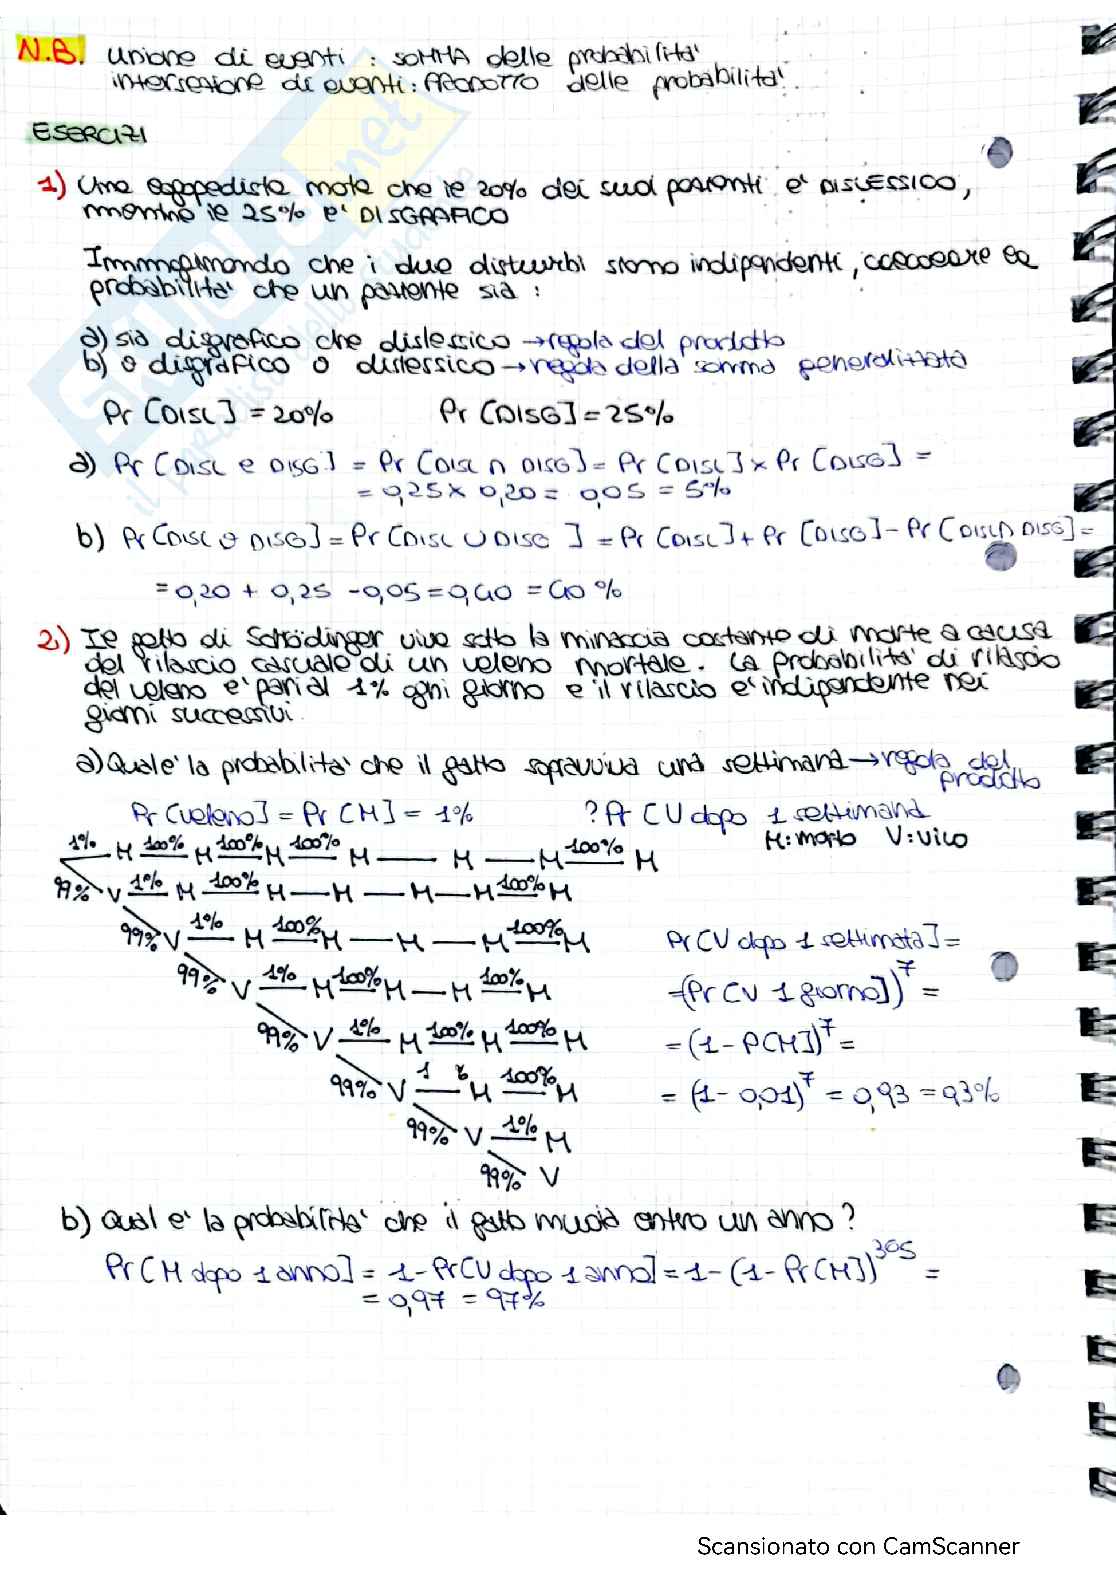 N.B. unione di eventi : SOMMA delle probabilità
intersezione di eventi : PRODOTTO delle probabilità.
ESERCIZI
1) Una logopedista nota che il 20% dei suoi pazienti è DISLESSICO,
mentre il 25% è DISGRAFICO
Immaginando che i due disturbi siano indipendenti, calcolare la
probabilità che un paziente sia :
a) sia disgrafico che dislessico → regola del prodotto
b) o disgrafico o dislessico → regola della somma generalizzata
Pr [DISL] = 20% Pr [DISG] = 25%
a) Pr [DISL e DISG] = Pr [DISL ∩ DISG] = Pr [DISL] × Pr [DISG] =
= 0,25 × 0,20 = 0,05 = 5%
b) Pr [DISL o DISG] = Pr [DISL ∪ DISG ] = Pr [DISL] + Pr [DISG] - Pr [DISL ∩ DISG] =
= 0,20 + 0,25 - 0,05 = 0,40 = 40 %
2) Il gatto di Schrödinger vive sotto la minaccia costante di morte a causa
del rilascio casuale di un veleno mortale. La probabilità di rilascio
del veleno è pari al 1% ogni giorno e il rilascio è indipendente nei
giorni successivi.
a) Qual è la probabilità che il gatto sopravviva una settimana → regola del
prodotto
Pr [veleno] = Pr [M] = 1% ? Pr [V dopo 1 settimana
M: morto V: vivo
1% M 100% M 100% M 100% M — M — M 100% M
99% V 1% M 100% M — M — M — M 100% M
99% V 1% M 100% M — M — M 100% M
Pr [V dopo 1 settimata] =
99% V 1% M 100% M — M 100% M
= (Pr [V 1 giorno])⁷ =
99% V 1% M 100% M 100% M
= (1 - P[M])⁷ =
99% V 1 % M 100% M
= (1 - 0,01)⁷ = 0,93 = 93%
99% V 1% M
99% V
b) Qual è la probabilità che il gatto muoia entro un anno ?
Pr [M dopo 1 anno] = 1 - Pr [V dopo 1 anno] = 1 - (1 - Pr [M])³⁶⁵ =
= 0,97 = 97%
SKUOLA.net
il paradiso dello studente
Scansionato con CamScanner